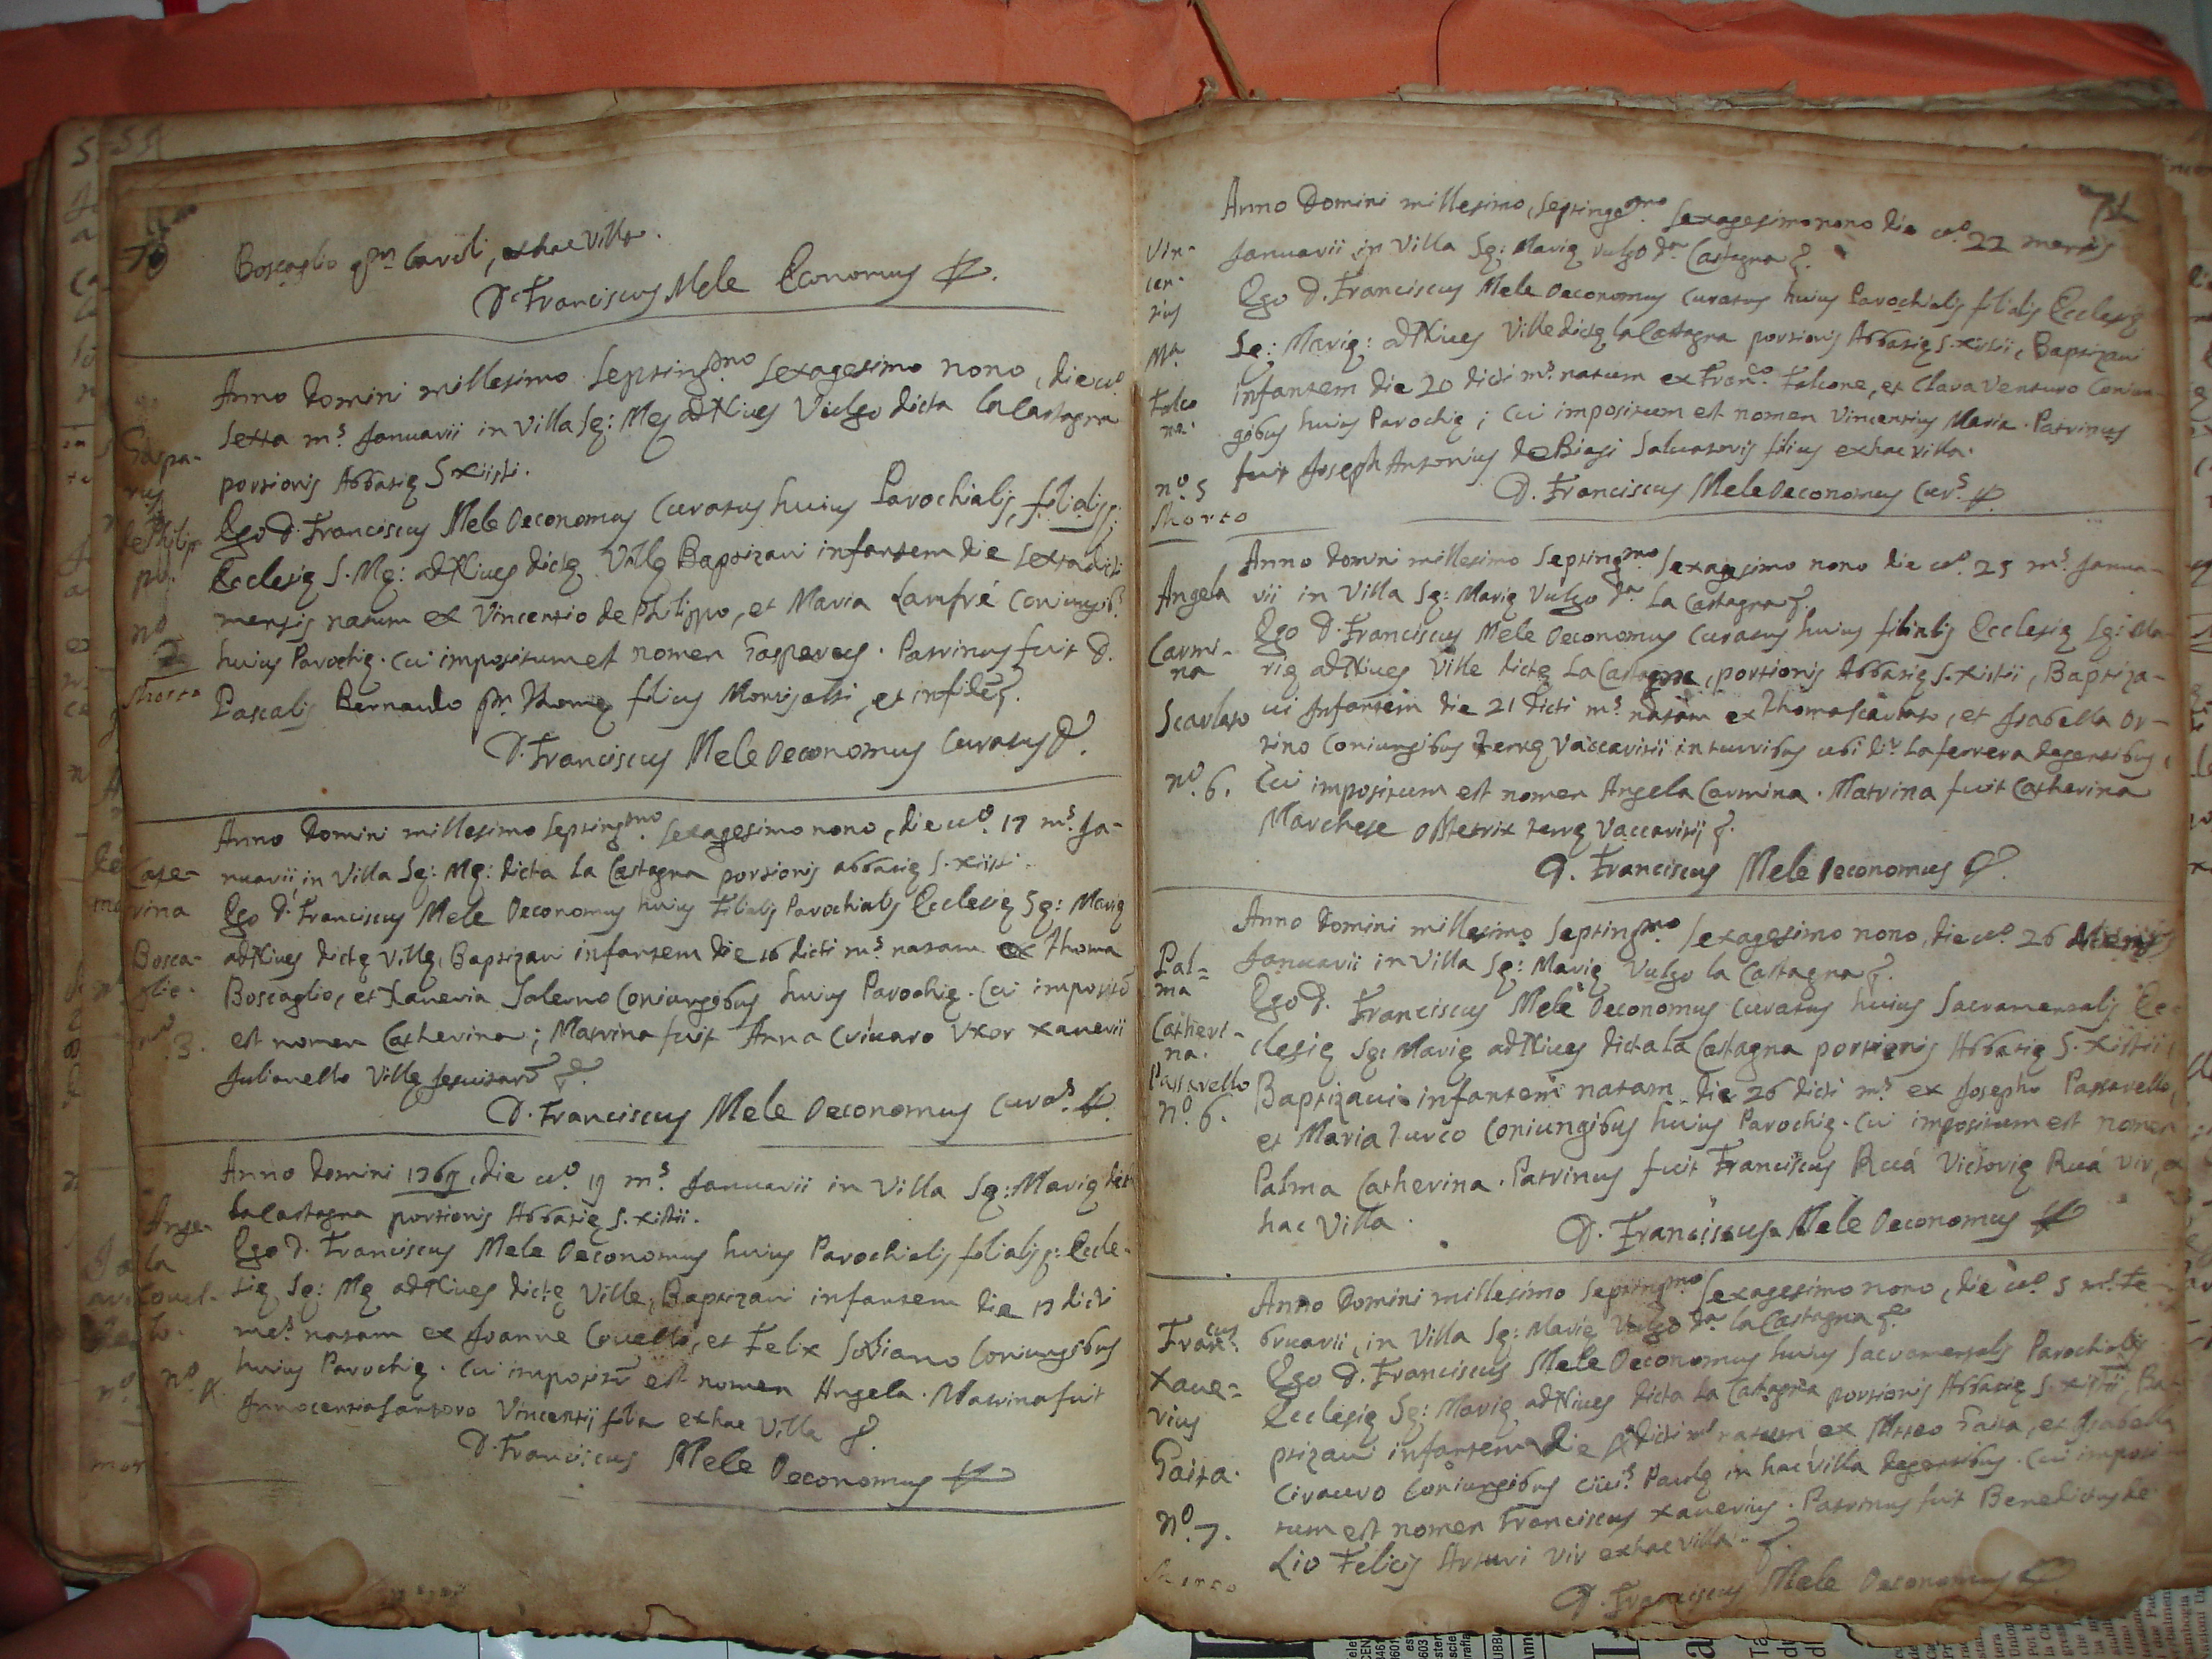 70
Boscaglio qm Caroli, ex hac Villa.
D. Franciscus Mele Economus
Anno Domini millesimo septingmo sexagesimo nono, die vo
sexta ms. Januarii in Villa Sę: Mę ad Nives Vulgo dicta la Castagna
portionis Abbatię S. Xisti.
Gaspa-
rus
de Philip-
pu.
no
2
Morto
Ego D. Franciscus Mele Oeconomus Curatus huius Parochialis, filialis
Ecclesię S. Mę: ad Nives dictę Villę Baptizavi infantem die sexta dicti
mensis natum ex Vincentio de Philippo, et Maria Lanfré Coniugib.
huius Parochię. Cui impositum est nomen Gasparus. Patrinus fuit D.
Pascalis Bernaudo qm Thomę filius Monsjalti, et in fidē
D. Franciscus Mele Oeconomus Curatus
Anno Domini millesimo septingmo. sexagesimo nono, die vo. 17 ms. Ja-
nuarii in Villa Sę: Mę: dicta La Castagna portionis abbatię S. Xisti.
Cate-
rina
Bosca-
glio.
no. 3.
Ego D. Franciscus Mele Oeconomus huius Filialis Parochialis Ecclesię Sę: Marię
ad Nives dictę Villę, Baptizavi infantem die 16 dicti ms. natam ex Thoma
Boscaglio, et Xaveria Salerno Coniungibus huius Parochię. Cui impositū
est nomen Catherina; Matrina fuit Anna Crivaro Uxor Xaverii
Julianello Villę Jesuitarū
D. Franciscus Mele Oeconomus Curas.
Anno Domini 1769, die vo. 19 ms. Januarii in Villa Sę: Marię dict
la Castagna portionis Abbatię S. Xistii.
Ange-
la
Covel-
lo.
no. 4.
Ego D. Franciscus Mele Oeconomus huius Parochialis filialis: Eccle-
się Sę: Mę ad Nives dictę Ville, Baptizavi infantem die 17 dicti
mes. natam ex Joanne Covello, et Felix Soviano Coniungibus
huius Parochię. Cui impositū est nomen Angela. Matrina fuit
Innocentia Santoro Vincentij filia ex hac Villa
D. Franciscus Mele Oeconomus
71
Anno Domini millesimo, septingemo sexagesimo nono die vo. 22 mensis
Januarii in Villa Sę: Marię vulgo da Castagna
Vin-
cen-
tius
Ma.
Falco
ne.
no. 5
Morto
Ego D. Franciscus Mele Oeconomus Curatus huius Parochialis filialis Ecclesię
Sę: Marię: ad Nives Ville dictę la Castagna portionis Abbatię S. Xistii, Baptizavi
infantem die 20 dicti ms. natum ex Franco. Falcone, et Clara Venturo Coniun-
gibus huius Parochię; Cui impositum est nomen Vincentius Maria. Patrinus
fuit Joseph Antonius de Biasi Salvatoris filius ex hac villa.
D. Franciscus Mele Oeconomus Curs.
Anno Domini millesimo septingmo. sexagesimo nono die vo. 25 ms. Janua-
rii in Villa Sę: Marię Vulgo da La Castagna
Angela
Carmi-
na
Scarlato
no. 6.
Ego D. Franciscus Mele Oeconomus Curatus huius filialis Ecclesię Sę: Ma-
rię ad Nives Ville dictę La Castagna, portionis Abbatię S. Xistii, Baptiza-
vi Infantem die 21 dicti ms. natam ex Thoma Scarlato, et Isabella Or-
rino Coniungibus terrę Vaccaritii in turribus ubi dr. La ferrera degentibus,
Cui impositum est nomen Angela Carmina. Matrina fuit Catherina
Marchese obstetrix terrę Vaccaritij
D. Franciscus Mele Oeconomus
Anno Domini millesimo septingmo. sexagesimo nono, die vo. 26
Januarii in Villa Sę: Marię Vulgo la Castagna
Pal-
ma
Catheri-
na.
Passarello
no. 6.
Ego D. Franciscus Mele Oeconomus Curatus huius Sacramentalis Ec-
clesię Sę: Marię ad Nives dicta la Castagna portionis Abbatię S. Xistii,
Baptizavi infantem natam die 26 dicti ms. ex Josepho Passarello,
et Maria Turco Coniungibus huius Parochię. Cui impositum est nomen
Palma Catherina. Patrinus fuit Franciscus Ruá Victorię Ruá vir, ex
hac Villa.
D. Franciscus Mele Oeconomus
Anno Domini millesimo septingmo. sexagesimo nono, die vo. 5 ms. Fe-
bruarii, in Villa Sę: Marię Vulgo da la Castagna
Francus.
Xave-
rius
Gaita.
no. 7.
Morto
Ego D. Franciscus Mele Oeconomus huius Sacramentalis Parochialis
Ecclesię Sę: Marię ad Nives dicta La Castagna portionis Abbatię S. Xistii, Ba-
ptizavi infantem die 4 dicti ms natum ex Matteo Gaita, et Isabella
Ciraulo Coniungibus civis. Paulę in hac villa degentibus. Cui imposi-
tum est nomen Franciscus Xaverius. Patrinus fuit Benedictus de
Lio Felicis Arturi vir ex hac villa.
D. Franciscus Mele Oeconomus